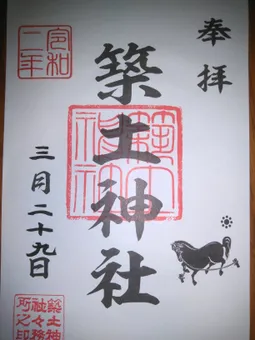 奉拝
築土神社
三月二十九日
令和二年
築土神社
築土神
社々務
所之印